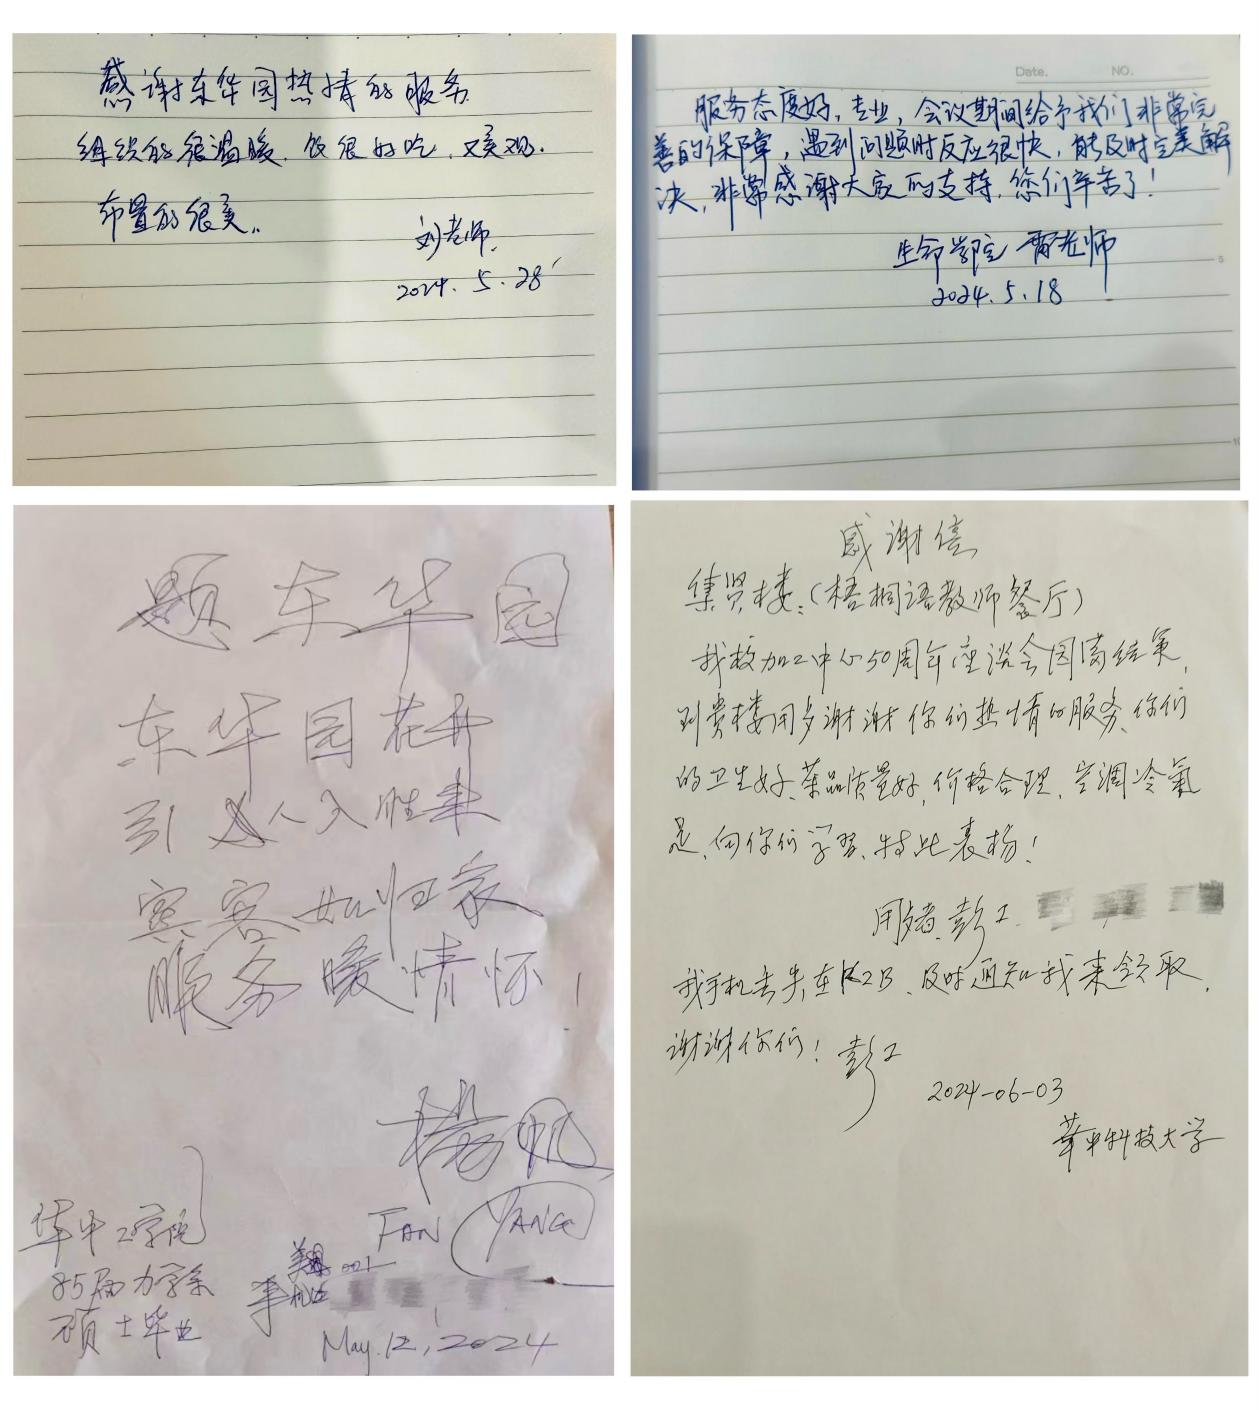 感谢东华园热情的服务
组织的很温暖、饭很好吃，又美观.
布置的很美。
刘老师.
2024.5.28
Date. NO.
服务态度好，专业，会议期间给予我们非常完
善的保障，遇到问题时反应很快，能及时完美解
决，非常感谢大家的支持，您们辛苦了！
生命学院 雷老师
2024.5.18
5
10
题东华园
东华园花开
引人入胜来
宾客如归家
服务暖情怀！
杨帆
FAN YANG
华中工学院
85届力学系
硕士毕业
美国 001
手机
May.12,2024
感谢信
集贤楼：（梧桐语教师餐厅）
我校加工中心50周年座谈会圆满结束，
到贵楼用歺谢谢你们热情的服务、你们
的卫生好、菜品质量好，价格合理，空调冷氣
足，向你们学习、特此表扬！
用歺者，彭工.
我手机丢失在K2B、及时通知我来领取，
谢谢你们！彭工
2024-06-03
華中科技大学